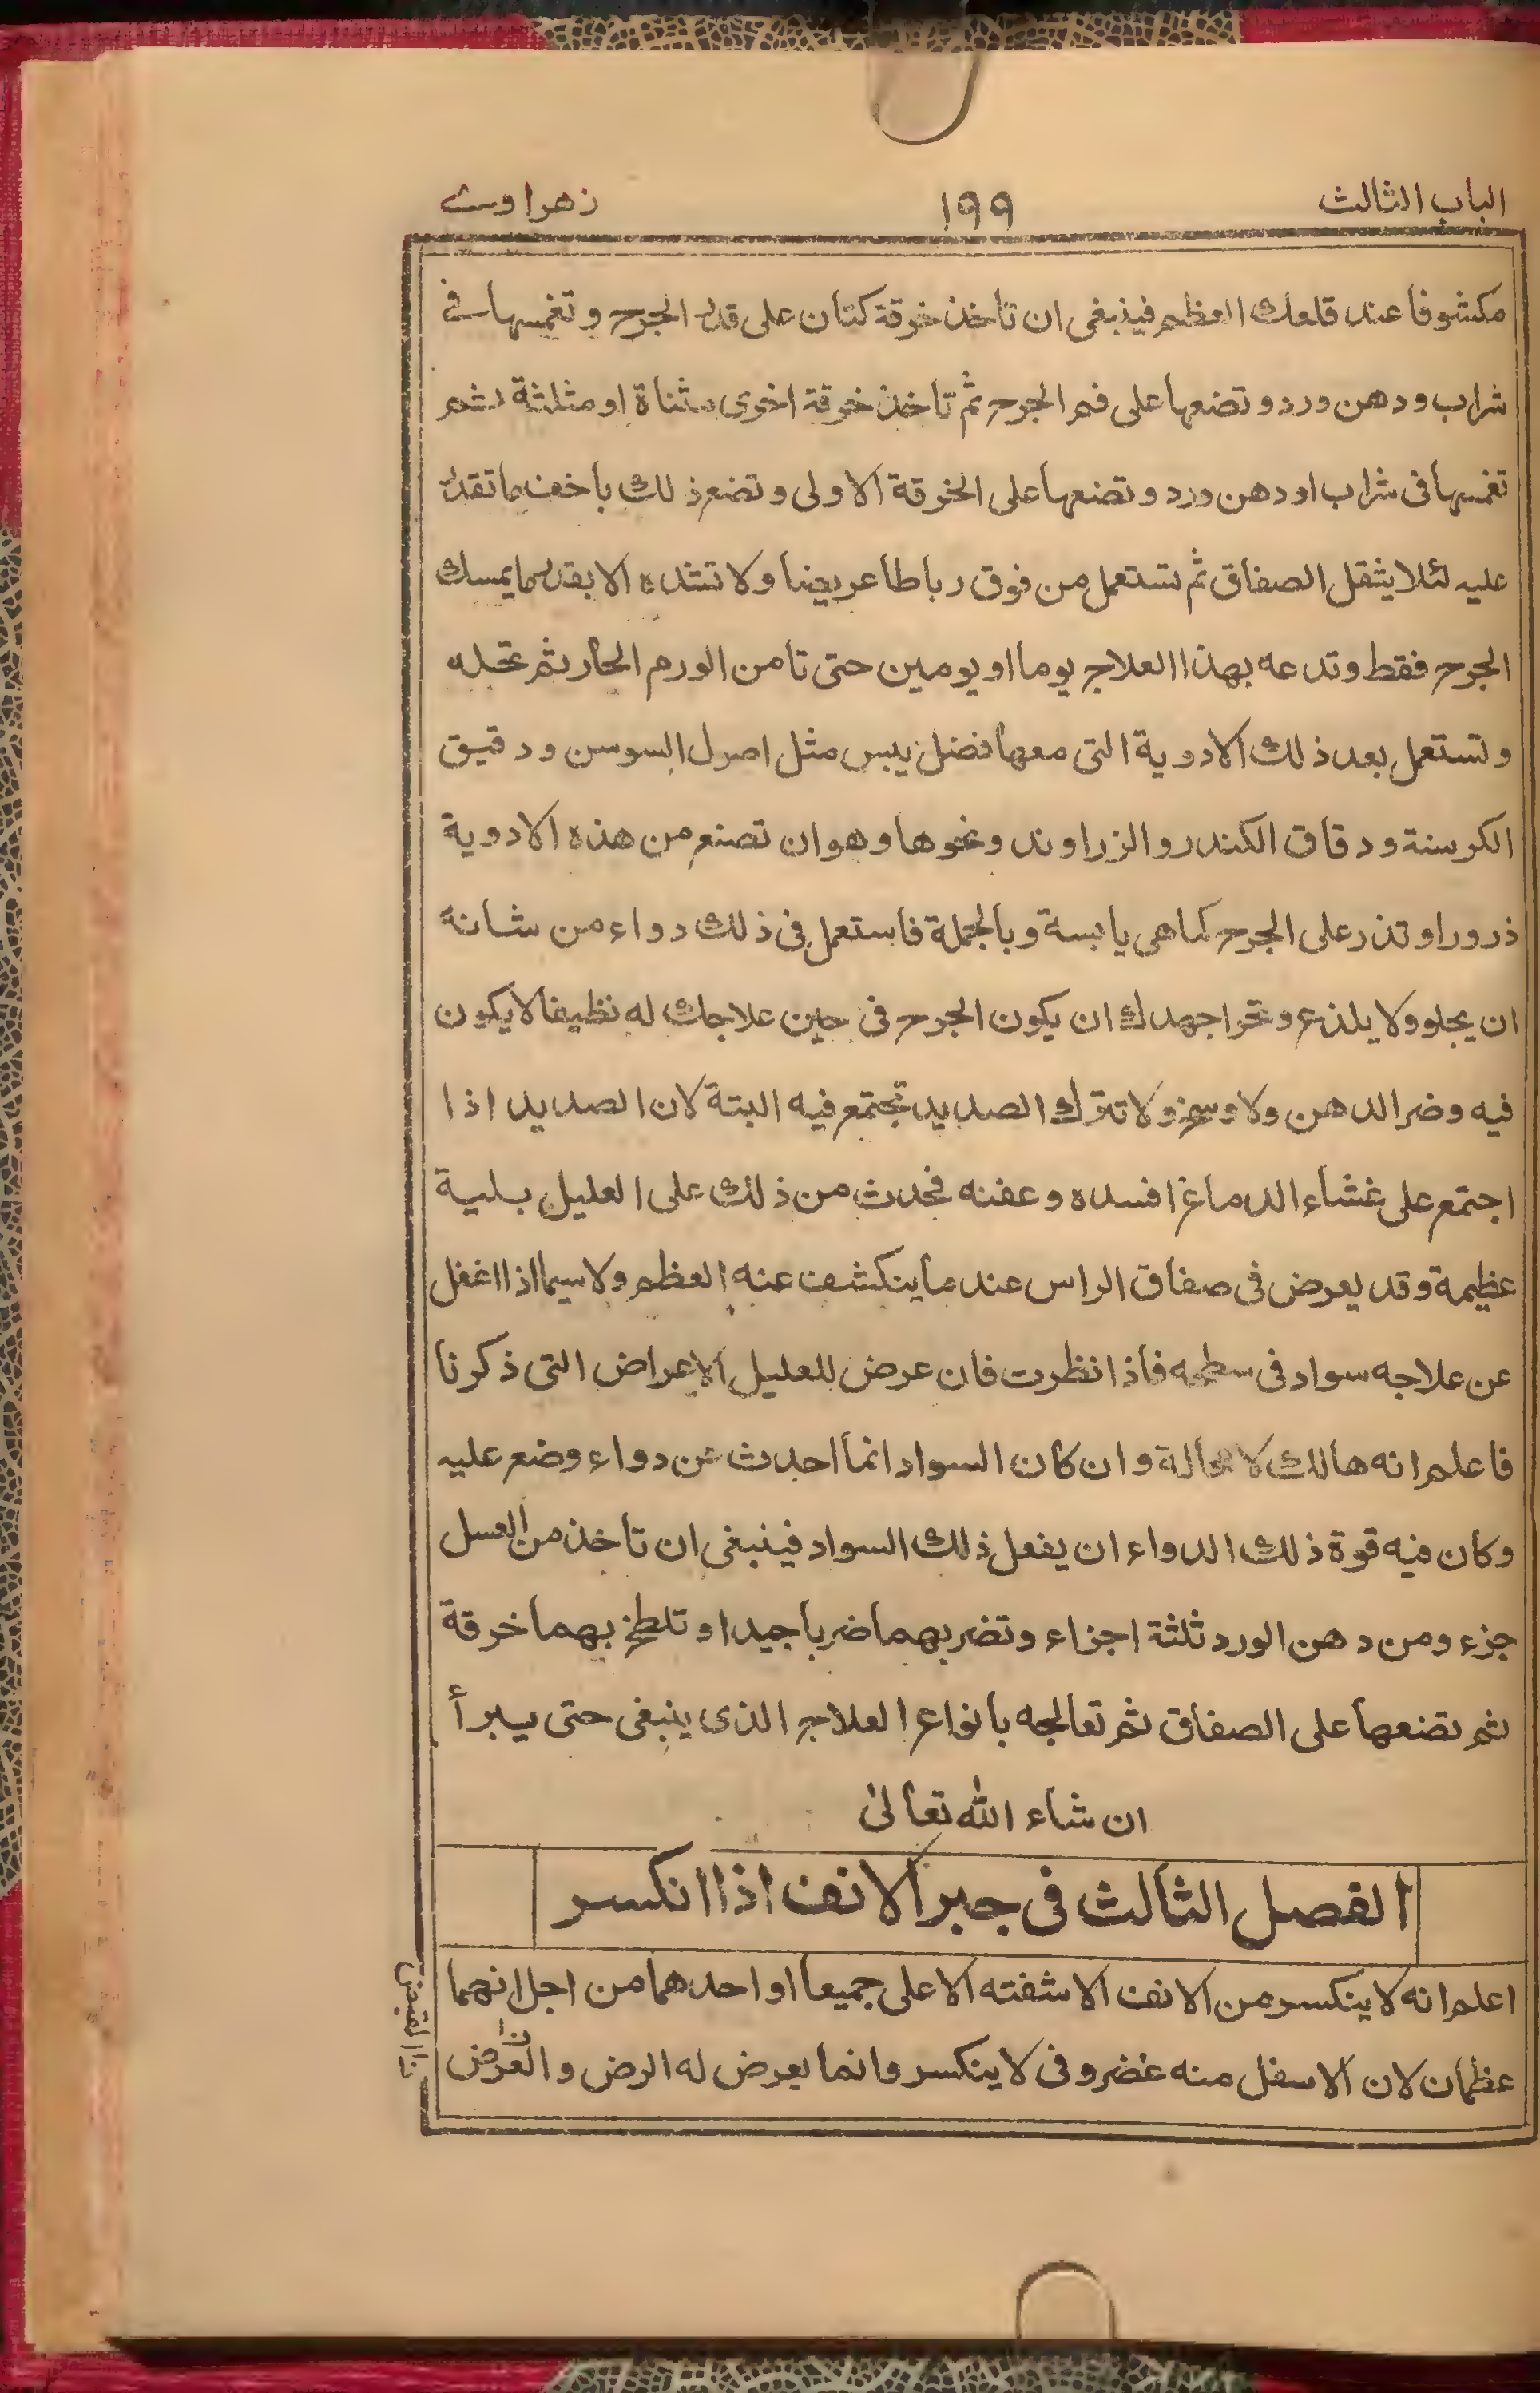 الباب الثالث ١٩٩ زهراوے
مكشوفا عند قلعك العظم فينبغى ان تاخذ خرقة كتان على قدر الجرح و تغمسها فے
شراب و دهن ورد و تضعها على فم الجرح ثم تاخذ خرقة اخرى مثناة او مثلثة ثم
تغمسها فى شراب او دهن ورد و تضعها على الخرقة الاولى و تضع ذلك باخف ما تقدر
عليه لئلا يثقل الصفاق ثم تستعمل من فوق رباطا عريضا ولا تشده الا بقدر ما يمسك
الجرح فقط و تدعه بهذا العلاج يوما او يومين حتى تامن الورم الحار ثم تحله
و تستعمل بعد ذلك الادوية التى معها فضل يبس مثل اصول السوسن و دقيق
الكرسنة و دقاق الكندر و الزراوند و نحوها و هو ان تصنع من هذه الادوية
ذرورا و تذر على الجرح كما هى يابسة و بالجملة فاستعمل فى ذلك دواء من شانه
ان يجلو ولا يلذع و تحرا جهدك ان يكون الجرح فى حين علاجك له نظيفا لا يكون
فيه وضر الدهن ولا وسخ ولا تترك الصديد تجتمع فيه البتة لان الصديد اذا
اجتمع على غشاء الدماغ افسده و عفنه فحدث من ذلك على العليل بلية
عظيمة و قد يعرض فى صفاق الراس عند ما ينكشف عنه العظم ولا سيما اذا اغفل
عن علاجه سواد فى سطحه فاذا نظرت فان عرض للعليل الاعراض التى ذكرنا
فاعلم انه هالك لا محالة و ان كان السواد انما احدث عن دواء وضع عليه
و كان فيه قوة ذلك الدواء ان يفعل ذلك السواد فينبغى ان تاخذ من العسل
جزء و من دهن الورد ثلثة اجزاء و تضربهما ضربا جيدا و تلطخ بهما خرقة
ثم تضعها على الصفاق ثم تعالجه بانواع العلاج الذى ينبغى حتى يبرأ
ان شاء الله تعالىٰ
الفصل الثالث فى جبر الانف اذا انكسر
اعلم انه لا ينكسر من الانف الا شفته الاعلى جميعا او احدهما من اجل انهما
عظمان لان الاسفل منه غضروفى لا ينكسر و انما يعرض له الرض و العرض